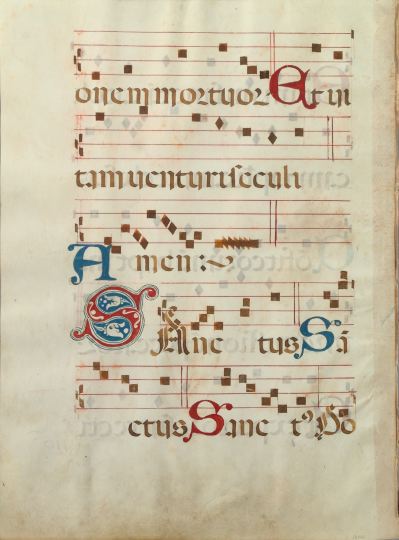 onem mortuor Et ui
tam uenturi seculi
Amen:~
Sanc tus Sā
ctus Sanc tꝰ Do